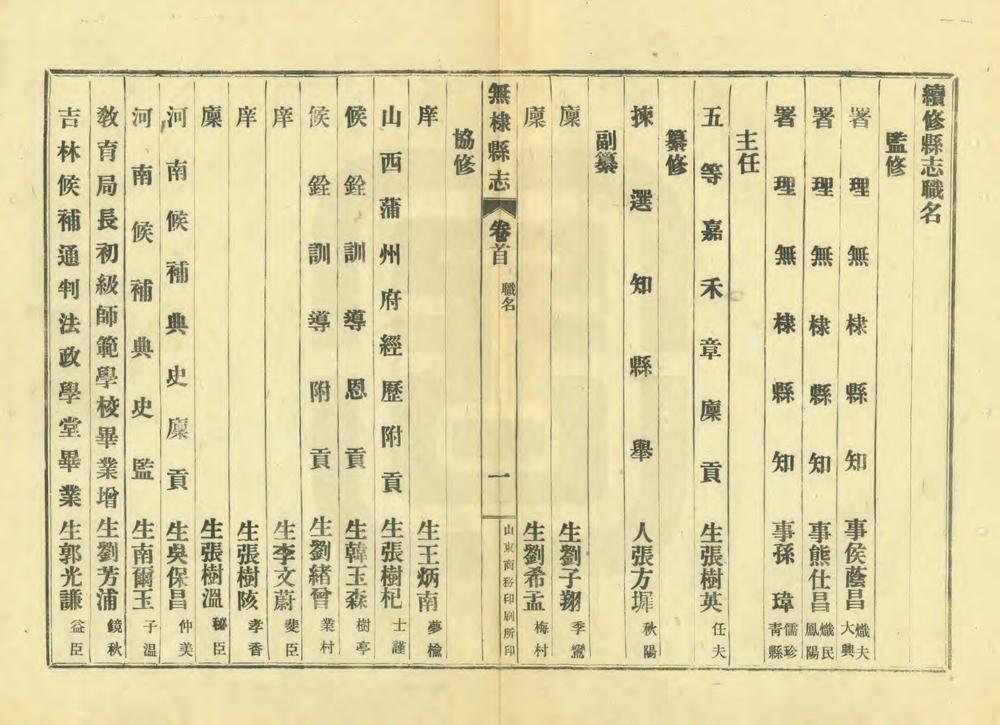 續修縣志職名
監修
署理無棣縣知事侯蔭昌熾夫大興
署理無棣縣知事熊仕昌熾民鳳陽
署理無棣縣知事孫瑋儒珍青縣
主任
五等嘉禾章廩貢生張樹英任夫
纂修
揀選知縣舉人張方墀秋陽
副纂
廩生劉子翔季鸞
廩生劉希孟梅村
無棣縣志 卷首 職名 一 山東商務印刷所印
庠生王炳南夢楡
協修
山西蒲州府經歷附貢生張樹杞士謹
候銓訓導恩貢生韓玉森樹亭
候銓訓導附貢生劉緒曾業村
庠生李文蔚斐臣
庠生張樹陔孝香
廩生張樹溫秘臣
河南候補典史廩貢生吳保昌仲美
河南候補典史監生南爾玉子溫
敎育局長初級師範學校畢業增生劉芳浦鏡秋
吉林候補通判法政學堂畢業生郭光謙益臣